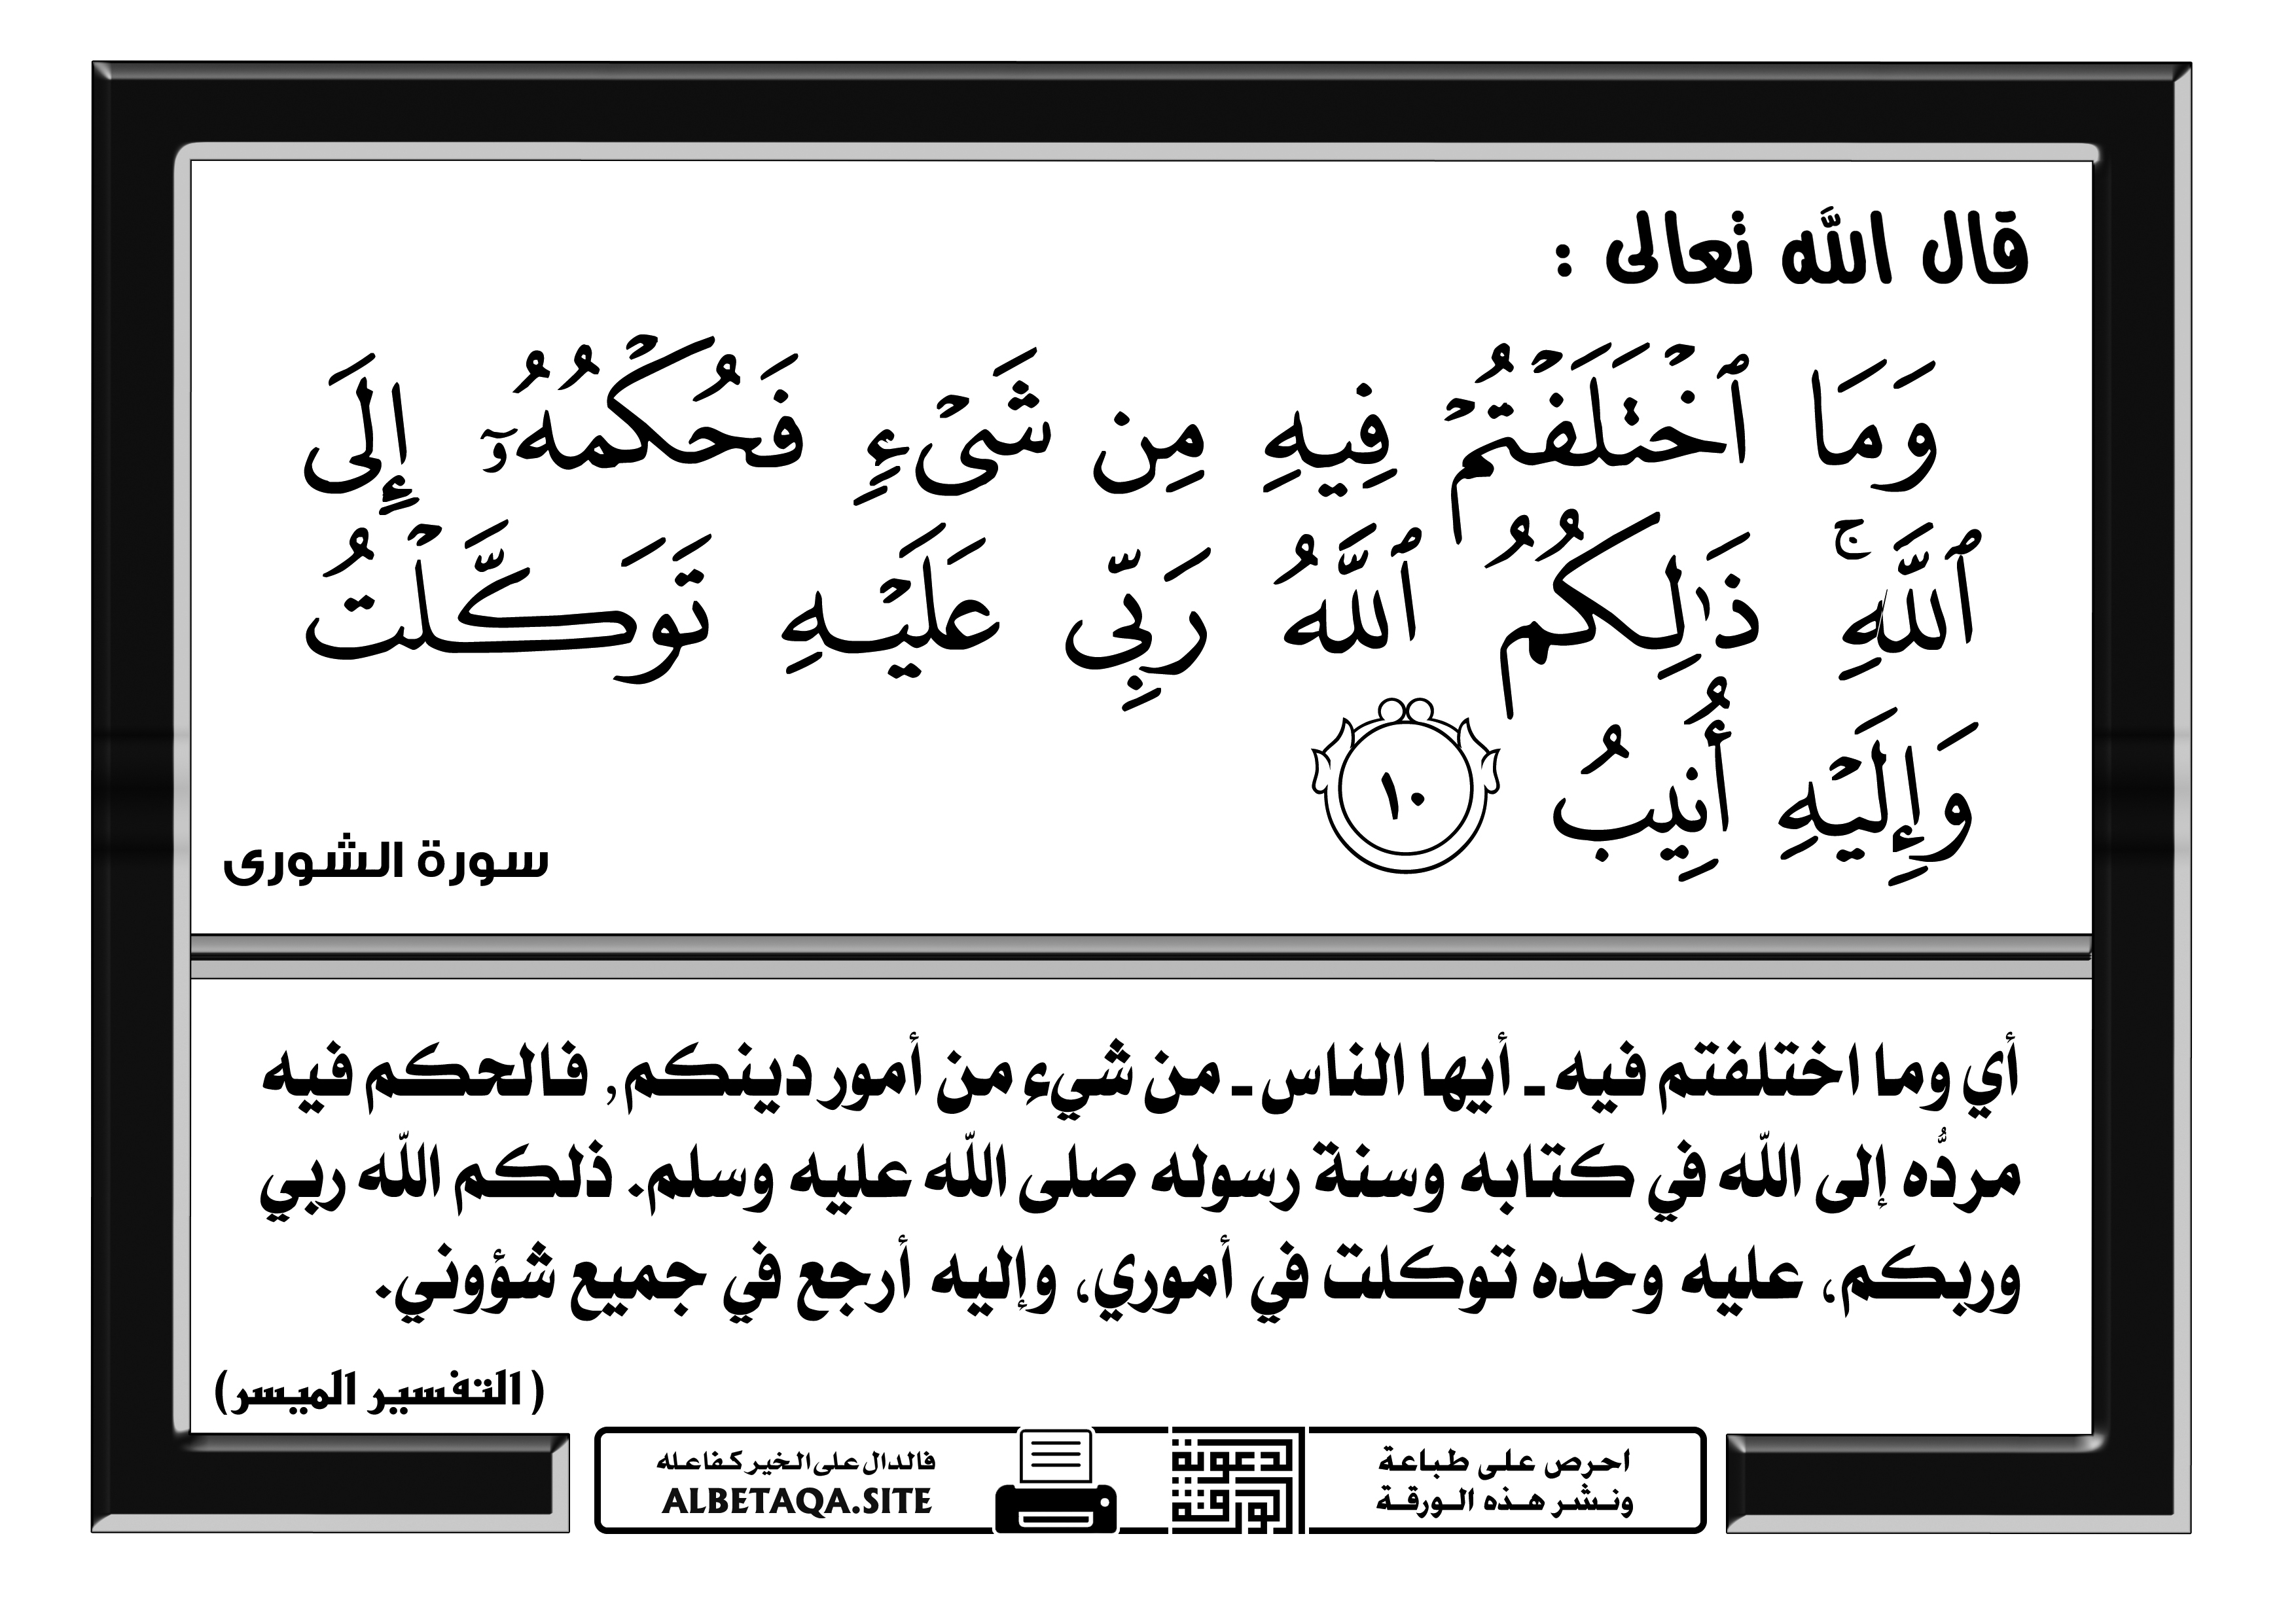 قال الله تعالى :
وَمَا ٱخۡتَلَفۡتُمۡ فِيهِ مِن شَيۡءٖ فَحُكۡمُهُۥٓ إِلَى
ٱللَّهِۚ ذَٰلِكُمُ ٱللَّهُ رَبِّي عَلَيۡهِ تَوَكَّلۡتُ
وَإِلَيۡهِ أُنِيبُ ١٠
سورة الشورى
أي وما اختلفتم فيه ـ أيها الناس ـ من شيء من أمور دينكم, فالحكم فيه
مردُّه إلى الله في كتابه وسنة رسوله صلى الله عليه وسلم. ذلكم الله ربي
وربكم، عليه وحده توكلت في أموري، وإليه أرجع في جميع شؤوني.
( التفسير الميسر)
احرص على طباعة
ونشر هذه الورقة
الدعوية
الورقة
فالدال على الخير كفاعله
ALBETAQA.SITE